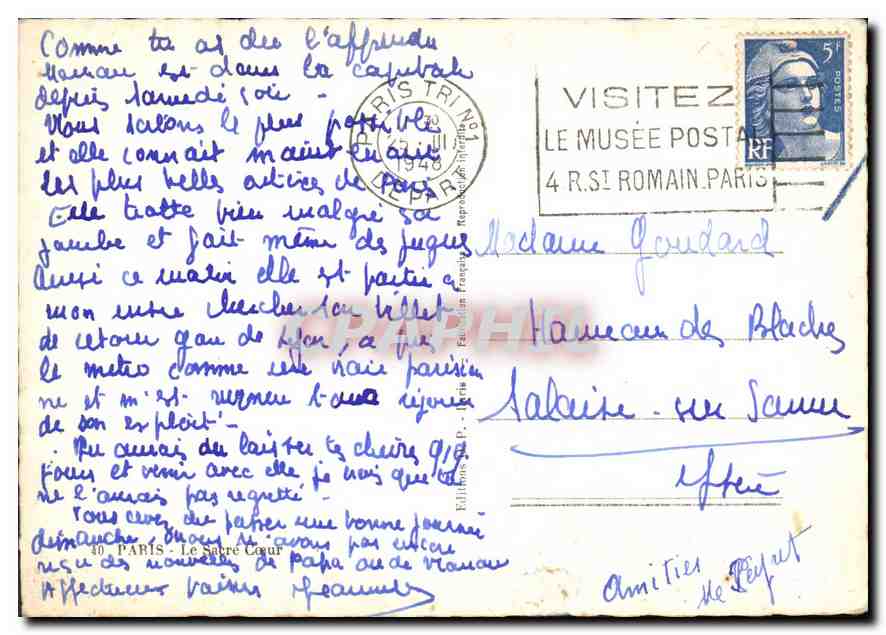 Comme tu as du l'apprendre
Maman est dans la capitale
depuis samedi soir -
Nous sortons le plus possible
et elle connait maintenant
les plus belles artères de Paris
Elle trotte bien malgré sa
jambe et fait même des fugues
Ainsi ce matin elle est partie à
mon insu chercher son billet
de retour gare de Lyon, a pris
le metro comme une vraie parisien
ne et m'est revenue toute réjouie
de son exploit -
Tu aurais du laisser tes chères qq
jours et venir avec elle je crois que tu
ne l'aurais pas regretté -
Vous avez du passer une bonne journée
dimanche, nous n'avons pas encore
reçu des nouvelles de Papa ou de
Affectueux baisers
40 PARIS - Le Sacré Cœur
Editions P. - Paris
Fabrication Française
Reproduction interdite
PARIS TRI No 1
30
III
1948
DEPART
VISITEZ
LE MUSÉE POSTAL
4 R. ST ROMAIN. PARIS
5F
POSTES
RF
Madame Goudard
Hameau des Blaches
Salaise-sur Sanne
Isère
Amitiés
CPAPHIL